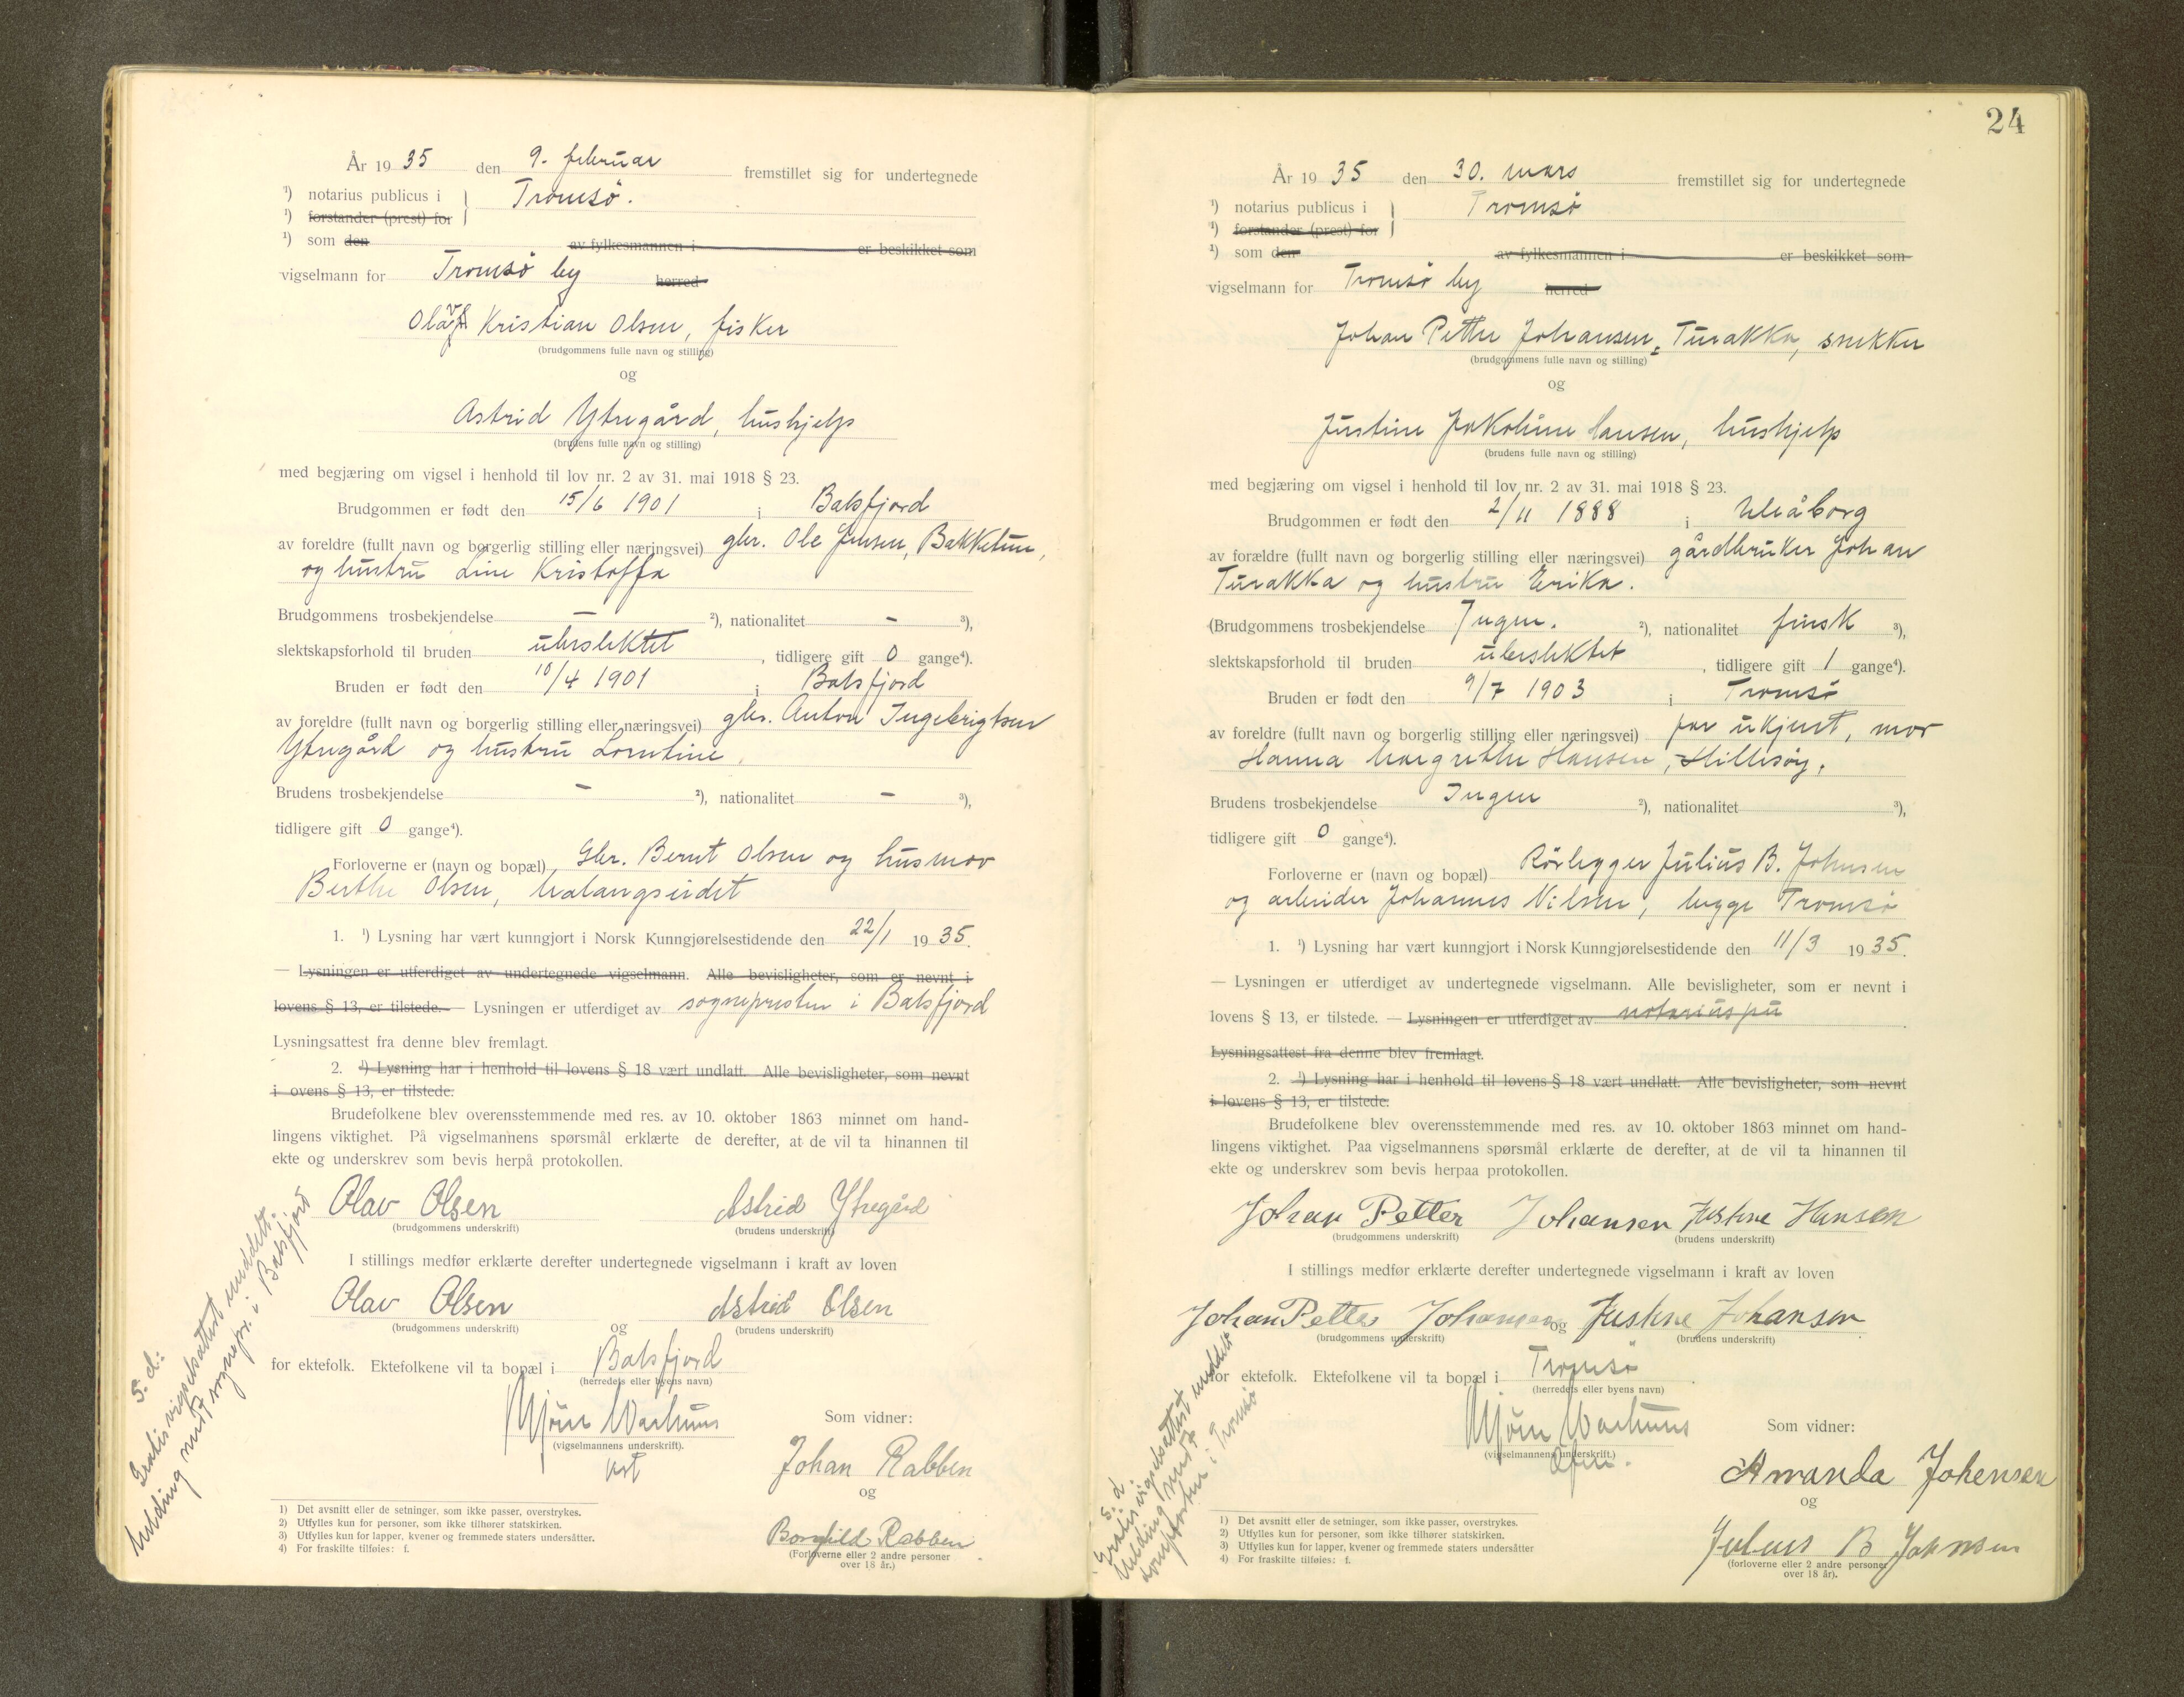 År 1935 den 9. februar fremstillet sig for undertegnede
¹) notarius publicus i Tromsö.
¹) forstander (prest) for
¹) som den av fylkesmannen i er beskikket som
vigselmann for Tromsö by herred
Olav Kristian Olsen, fisker
(brudgommens fulle navn og stilling)
og
Astrid Ytregård, hushjelp
(brudens fulle navn og stilling)
med begjæring om vigsel i henhold til lov nr. 2 av 31. mai 1918 § 23.
Brudgommen er født den 15/6 1901 i Balsfjord
av foreldre (fullt navn og borgerlig stilling eller næringsvei) gbr. Ole Jensen, Bakketun,
og hustru Line Kristoffa
Brudgommens trosbekjendelse — ²), nationalitet - ³),
slektskapsforhold til bruden ubeslektet, tidligere gift 0 gange⁴).
Bruden er født den 10/4 1901 i Balsfjord
av foreldre (fullt navn og borgerlig stilling eller næringsvei) gbr. Anton Ingebrigtsen
Ytregård og hustru Lorntine.
Brudens trosbekjendelse - ²), nationalitet - ³),
tidligere gift 0 gange⁴).
Forloverne er (navn og bopæl) Gbr. Bernt Olsen og husmor
Berthe Olsen, Malangseidet
1. ¹) Lysning har vært kunngjort i Norsk Kunngjørelsestidende den 22/1 1935.
— Lysningen er utferdiget av undertegnede vigselmann. Alle bevisligheter, som er nevnt i
lovens § 13, er tilstede. — Lysningen er utferdiget av sognepresten i Balsfjord
Lysningsattest fra denne blev fremlagt.
2. ¹) Lysning har i henhold til lovens § 18 vært undlatt. Alle bevisligheter, som nevnt
i ovens § 13, er tilstede.
Brudefolkene blev overensstemmende med res. av 10. oktober 1863 minnet om hand-
lingens viktighet. På vigselmannens spørsmål erklærte de derefter, at de vil ta hinannen til
ekte og underskrev som bevis herpå protokollen.
Olav Olsen Astrid Ytregård
(brudgommens underskrift) (brudens underskrift)
I stillings medfør erklærte derefter undertegnede vigselmann i kraft av loven
Olav Olsen og Astrid Olsen
(brudgommens underskrift) (brudens underskrift)
for ektefolk. Ektefolkene vil ta bopæl i Balsfjord
(herredets eller byens navn)
(vigselmannens underskrift).
Som vidner:
Johan Rabben
og
Borghild Rabben
(Forloverne eller 2 andre personer
over 18 år.)
S. d.:
Gratis vigselsattest meddelt.
Melding sendt sognepr. i Balsfjord
1) Det avsnitt eller de setninger, som ikke passer, overstrykes.
2) Utfylles kun for personer, som ikke tilhører statskirken.
3) Utfylles kun for lapper, kvener og fremmede staters undersåtter.
4) For fraskilte tilføies: f.
24
År 1935 den 30. mars fremstillet sig for undertegnede
¹) notarius publicus i Tromsö
¹) forstander (prest) for
¹) som den av fylkesmannen i er beskikket som
vigselmann for Tromsö by herred
Johan Petter Johansen = Turakka, snekker
(brudgommens fulle navn og stilling)
og
Justine Jakobine Hansen, hushjelp
(brudens fulle navn og stilling)
med begjæring om vigsel i henhold til lov nr. 2 av 31. mai 1918 § 23.
Brudgommen er født den 2/11 1888 i Uleåborg
av forældre (fullt navn og borgerlig stilling eller næringsvei) gårdbruker Johan
Turakka og hustru Erika.
(Brudgommens trosbekjendelse Ingen. ²), nationalitet finsk ³),
slektskapsforhold til bruden ubeslektet, tidligere gift 1 gange⁴).
Bruden er født den 9/7 1903 i Tromsö
av foreldre (fullt navn og borgerlig stilling eller næringsvei) far ukjent, mor
Hanna Margrethe Hansen, Hillesöy.
Brudens trosbekjendelse Ingen ²), nationalitet ³),
tidligere gift 0 gange⁴).
Forloverne er (navn og bopæl) Rörlegger Julius B. Johnsen
og arbeider Johannes Nilsen, begge Tromsö
1. ¹) Lysning har vært kunngjort i Norsk Kunngjørelsestidende den 11/3 1935.
— Lysningen er utferdiget av undertegnede vigselmann. Alle bevisligheter, som er nevnt i
lovens § 13, er tilstede. — Lysningen er utferdiget av notarius pu
Lysningsattest fra denne blev fremlagt.
2. ¹) Lysning har i henhold til lovens § 18 vært undlatt. Alle bevisligheter, som nevnt
i lovens § 13, er tilstede.
Brudefolkene blev overensstemmende med res. av 10. oktober 1863 minnet om hand-
lingens viktighet. Paa vigselmannens spørsmål erklærte de derefter, at de vil ta hinannen til
ekte og underskrev som bevis herpaa protokollen.
Johan Petter Johansen Justine Hansen
(brudgommens underskrift) (brudens underskrift)
I stillings medfør erklærte derefter undertegnede vigselmann i kraft av loven
Johan Petter Johansen og Justine Johansen
(brudgommens underskrift) (brudens underskrift)
for ektefolk. Ektefolkene vil ta bopæl i Tromsö
(herredets eller byens navn)
(vigselmannens underskrift.)
Som vidner:
Amanda Johensen
og
Julius B Johnsen
(forloverne eller 2 andre personer
over 18 år).
S. d.
Gratis vigselsattest meddelt
Melding sendt
sognepresten i Tromsö
1) Det avsnitt eller de setninger, som ikke passer, overstrykes.
2) Utfylles kun for personer, som ikke tilhører statskirken.
3) Utfylles kun for lapper, kvener og fremmede staters undersåtter
4) For fraskilte tilføies: f.